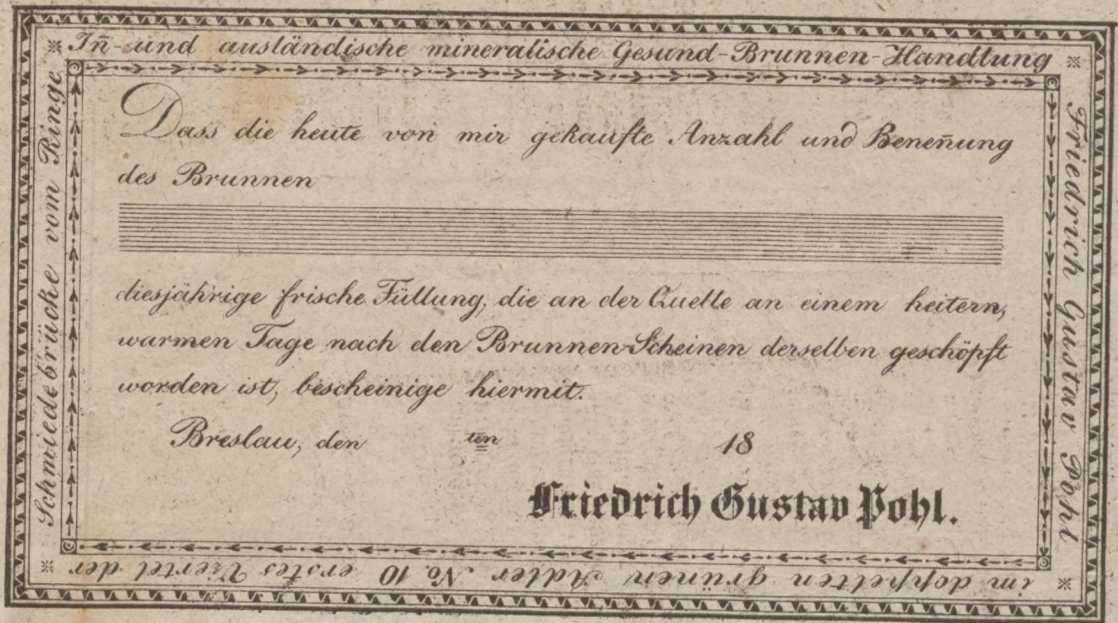 In̄- und ausländische mineralische Gesund-Brunnen-Handlung
Friedrich Gustav Pohl
im doppelten grünen Adler No. 10 erstes Viertel der
Schmiedebrücke vom Ringe
Dass die heute von mir gekaufte Anzahl und Benen̄ung
des Brunnen
diesjährige frische Füllung, die an der Quelle an einem heitern,
warmen Tage nach den Brunnen-Scheinen derselben geschöpft
worden ist, bescheinige hiermit.
Breslau, den ten 18
Friedrich Gustav Pohl.